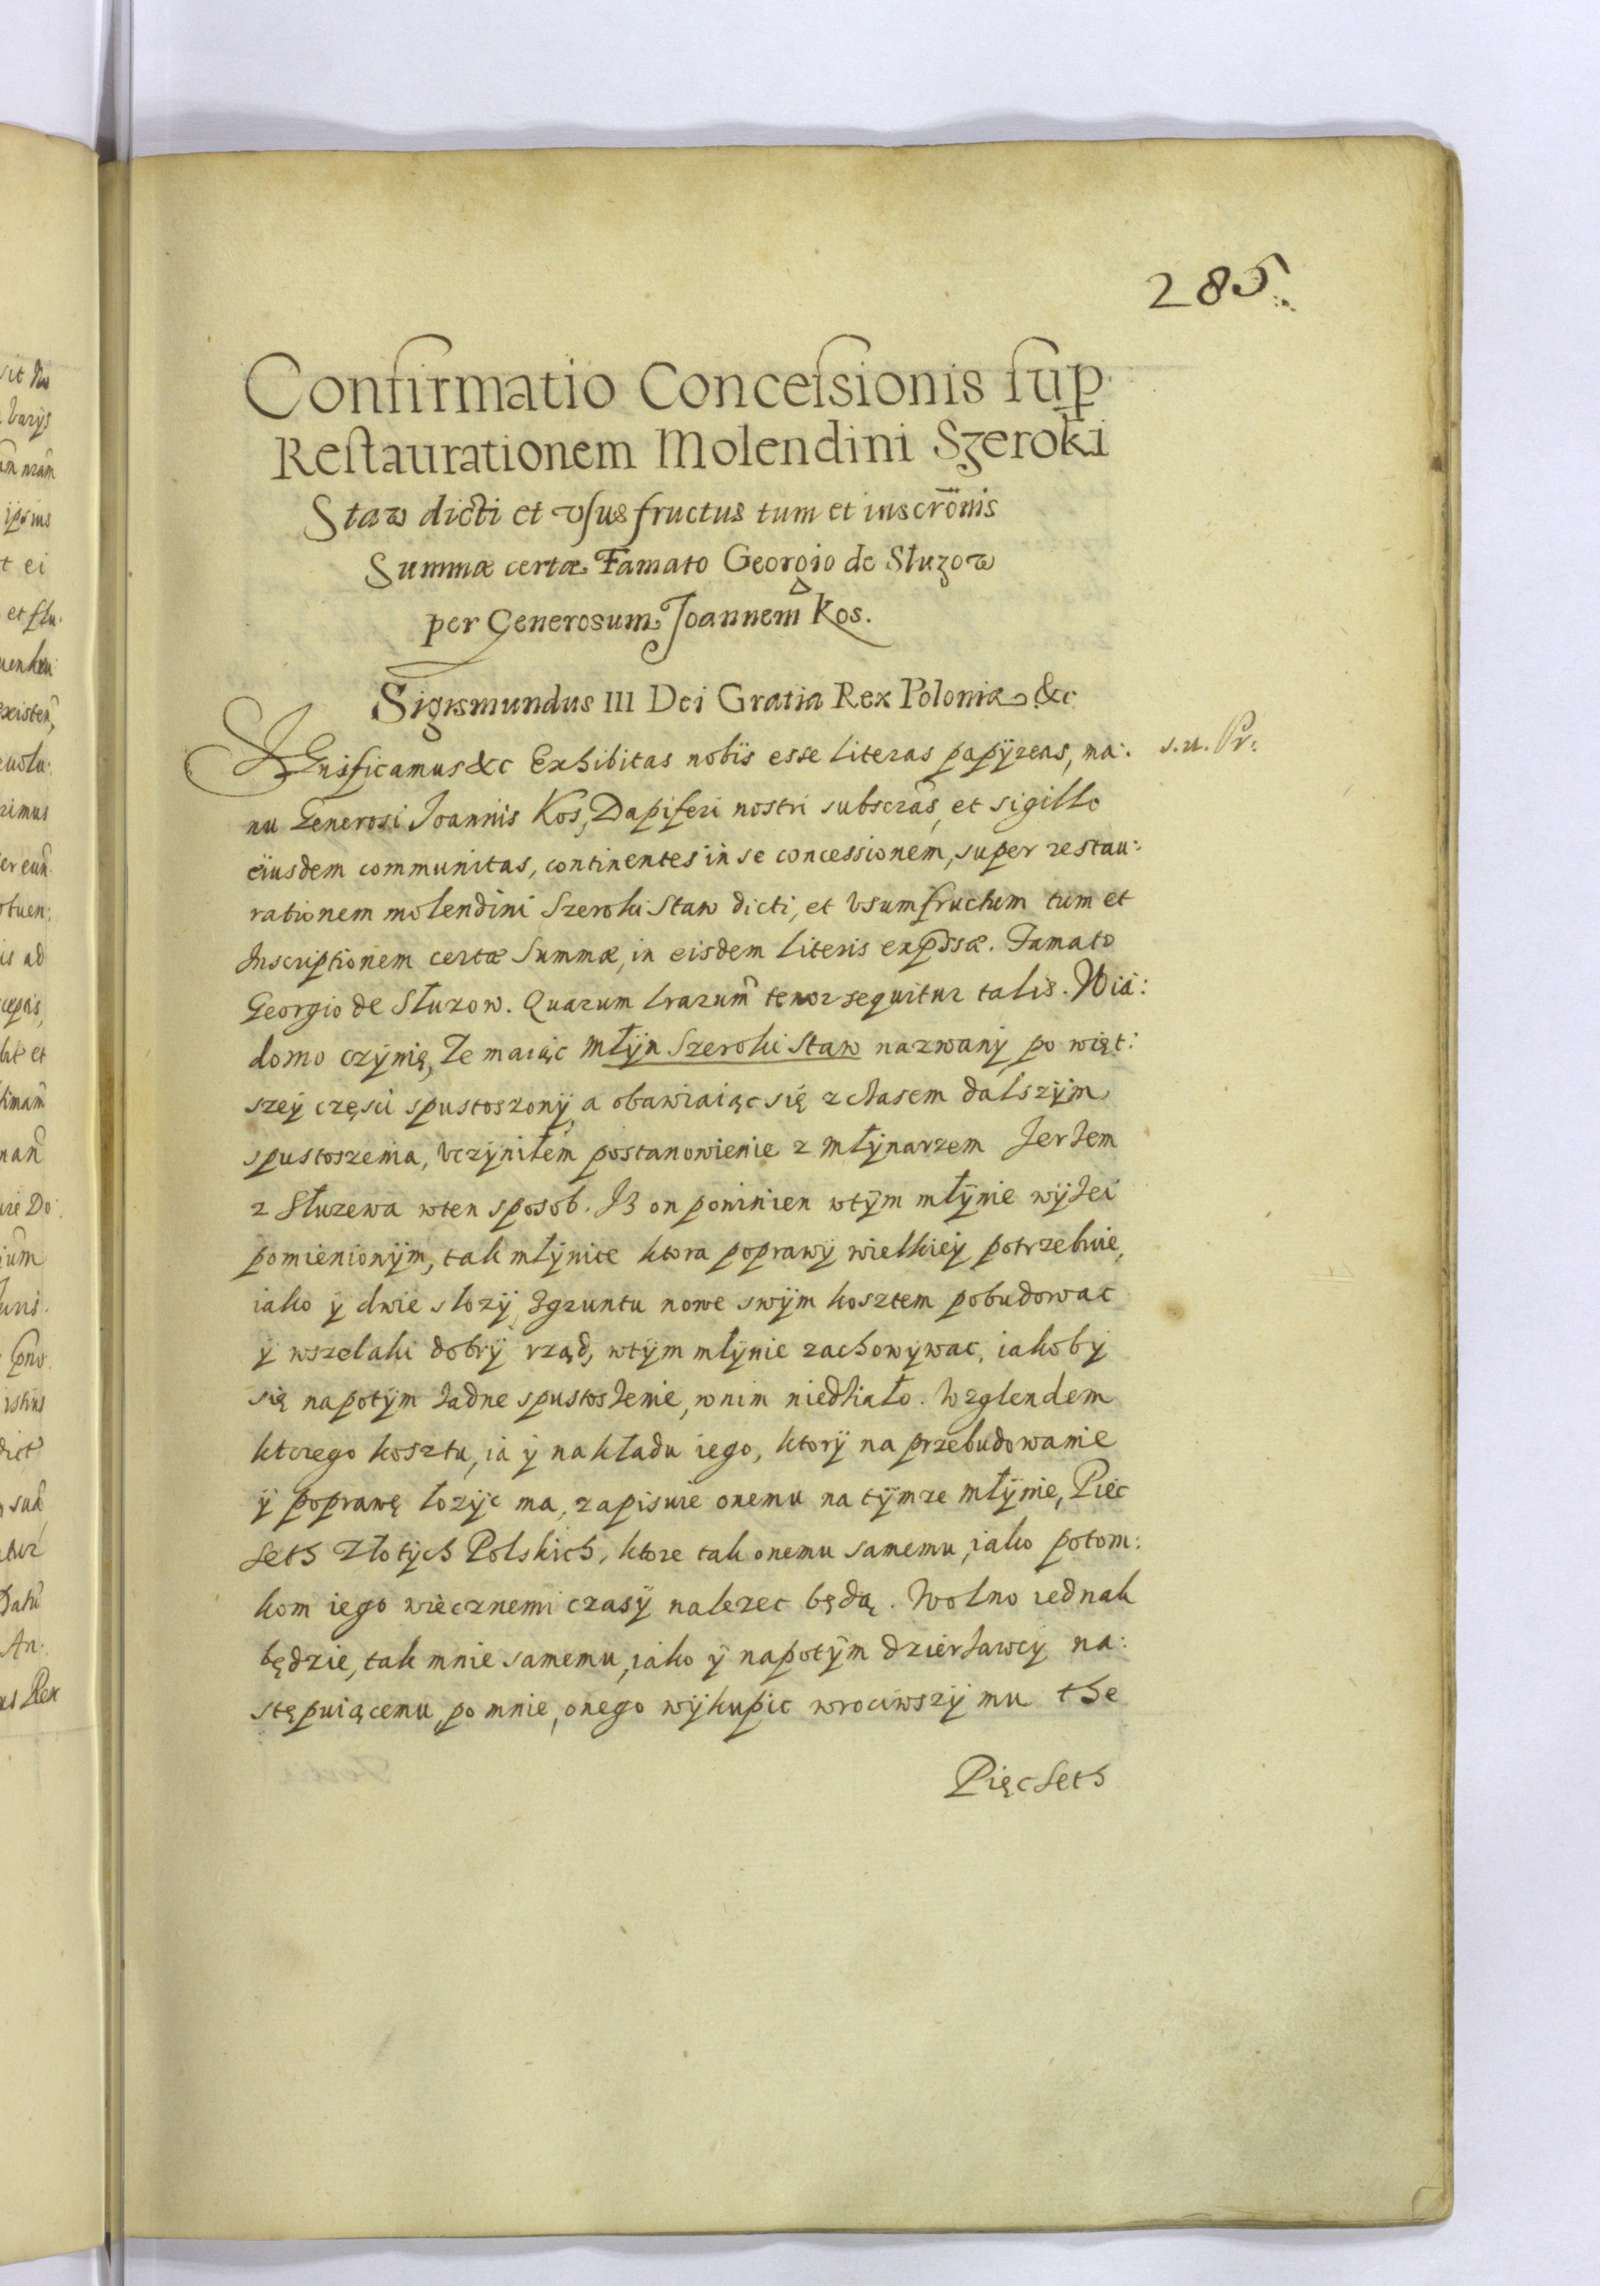 285.
Confirmatio Concessionis sup
Restaurationem Molendini Szeroki
Staw dicti et vsus fructus tum et inscrōnis
Summæ certæ Famato Georgio de Służow
per Generosum Joannem Kos.
Sigismundus III Dei Gratia Rex Poloniæ &c
Significamus &c Exhibitas nobis esse literas papÿreas, ma: s.u. Pr:
nu Generosi Joannis Kos, Dapiferi nostri subscras, et sigillo
eiusdem communitas, continentes in se concessionem, super restau:
rationem molendini Szeroki Staw dicti, et Vsumfructum tum et
Inscriptionem certæ Summæ, in eisdem literis expssæ. Famato
Georgio de Słuzow. Quarum lrarum tenor sequitur talis. Wia:
domo czÿnię, Ze maiąc Młÿn Szeroki Staw nazwanÿ po więt:
szeÿ częsci spustoszonÿ, a obawiaiąc się z cZasem dalszÿm
spustoszenia, Vczÿniłem postanowienie z Młÿnarzem JerZem
z Słuzewa wten sposob. Iz on powinien wtÿm młÿnie wÿZei
pomienionÿm, tak młÿnice ktora poprawÿ wielkieÿ potrzebuie,
iako ÿ dwie słozÿ zgruntu nowe swÿm kosztem pobudowac
ÿ wszelaki dobrÿ rząd, wtÿm młÿnie zachowywac, iakobÿ
się napotÿm Zadne spustosZenie, wnim niedZiało. Wzglendem
ktorego kosztu, ia ÿ nakładu iego, ktorÿ na przebudowanie
ÿ poprawę łozÿc ma, zapisuie onemu na tÿmze młÿnie, Piec
Seth Złotÿch Polskich, ktore tak onemu samemu, iako potom:
kom iego wiecznemi czasÿ nalezec będą. Wolno iednak
będzie, tak mnie samemu, iako ÿ napotÿm dzierZawcÿ na:
stępuiącemu po mnie, onego wÿkupic wrociwszÿ mu the
Pięc Seth